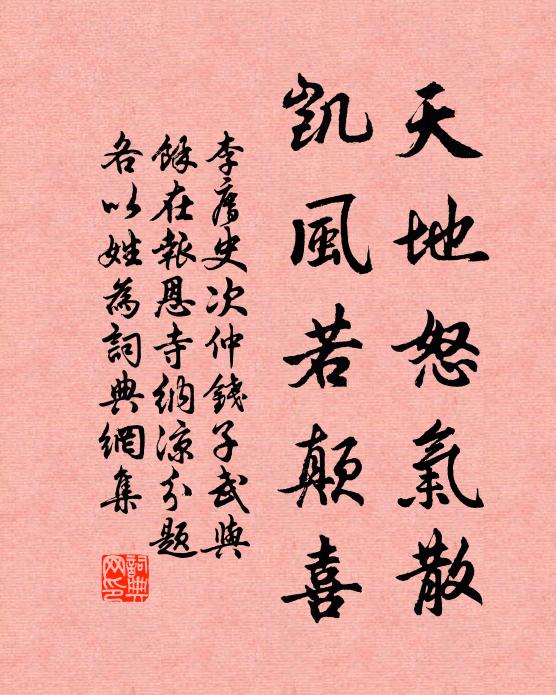 天地怒氣散
凱風若顛喜
李㢘史次仲錢子武與
餘在報恩寺納涼分題
各以姓為詞典網集
詞典网印